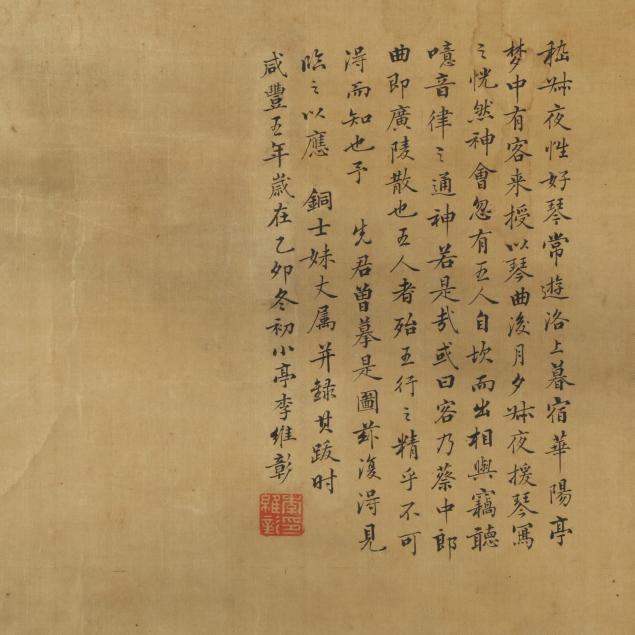 嵇叔夜性好琴常遊洛上暮宿華陽亭
梦中有客来授以琴曲後月夕叔夜援琴寫
之恍然神會忽有五人自坎而出相與竊聽
噫音律之通神若是哉或曰客乃蔡中郎
曲即廣陵散也五人者殆五行之精乎不可
得而知也予 先君曾摹是圖茲復得見
臨之以應 銅士妹丈属并録其跋时
咸豐五年歲在乙卯冬初小亭李維彰
李維彰印